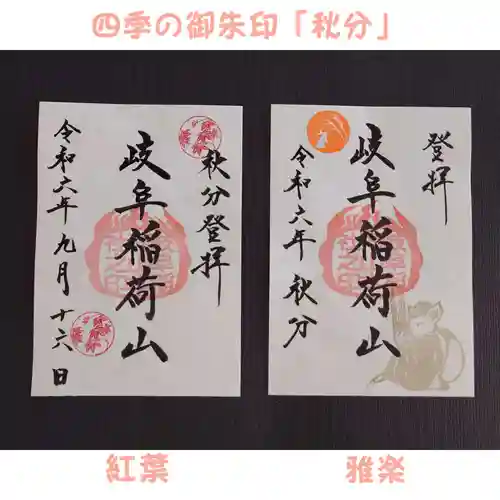 四季の御朱印「秋分」
秋分登拝
岐阜稲荷山
令和六年九月十六日
登拝
岐阜稲荷山
令和六年秋分
紅葉
雅楽